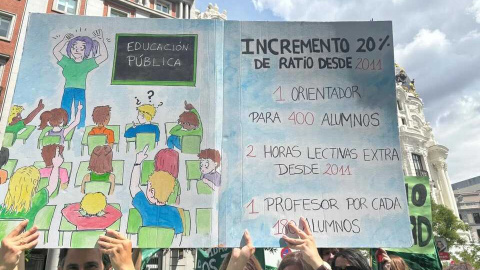 EDUCACIÓN
PÚBLICA
? ? ?
INCREMENTO 20%
DE RATIO DESDE 2011
1 ORIENTADOR
PARA 400 ALUMNOS
2 HORAS LECTIVAS EXTRA
DESDE 2011
1 PROFESOR POR CADA
180 ALUMNOS